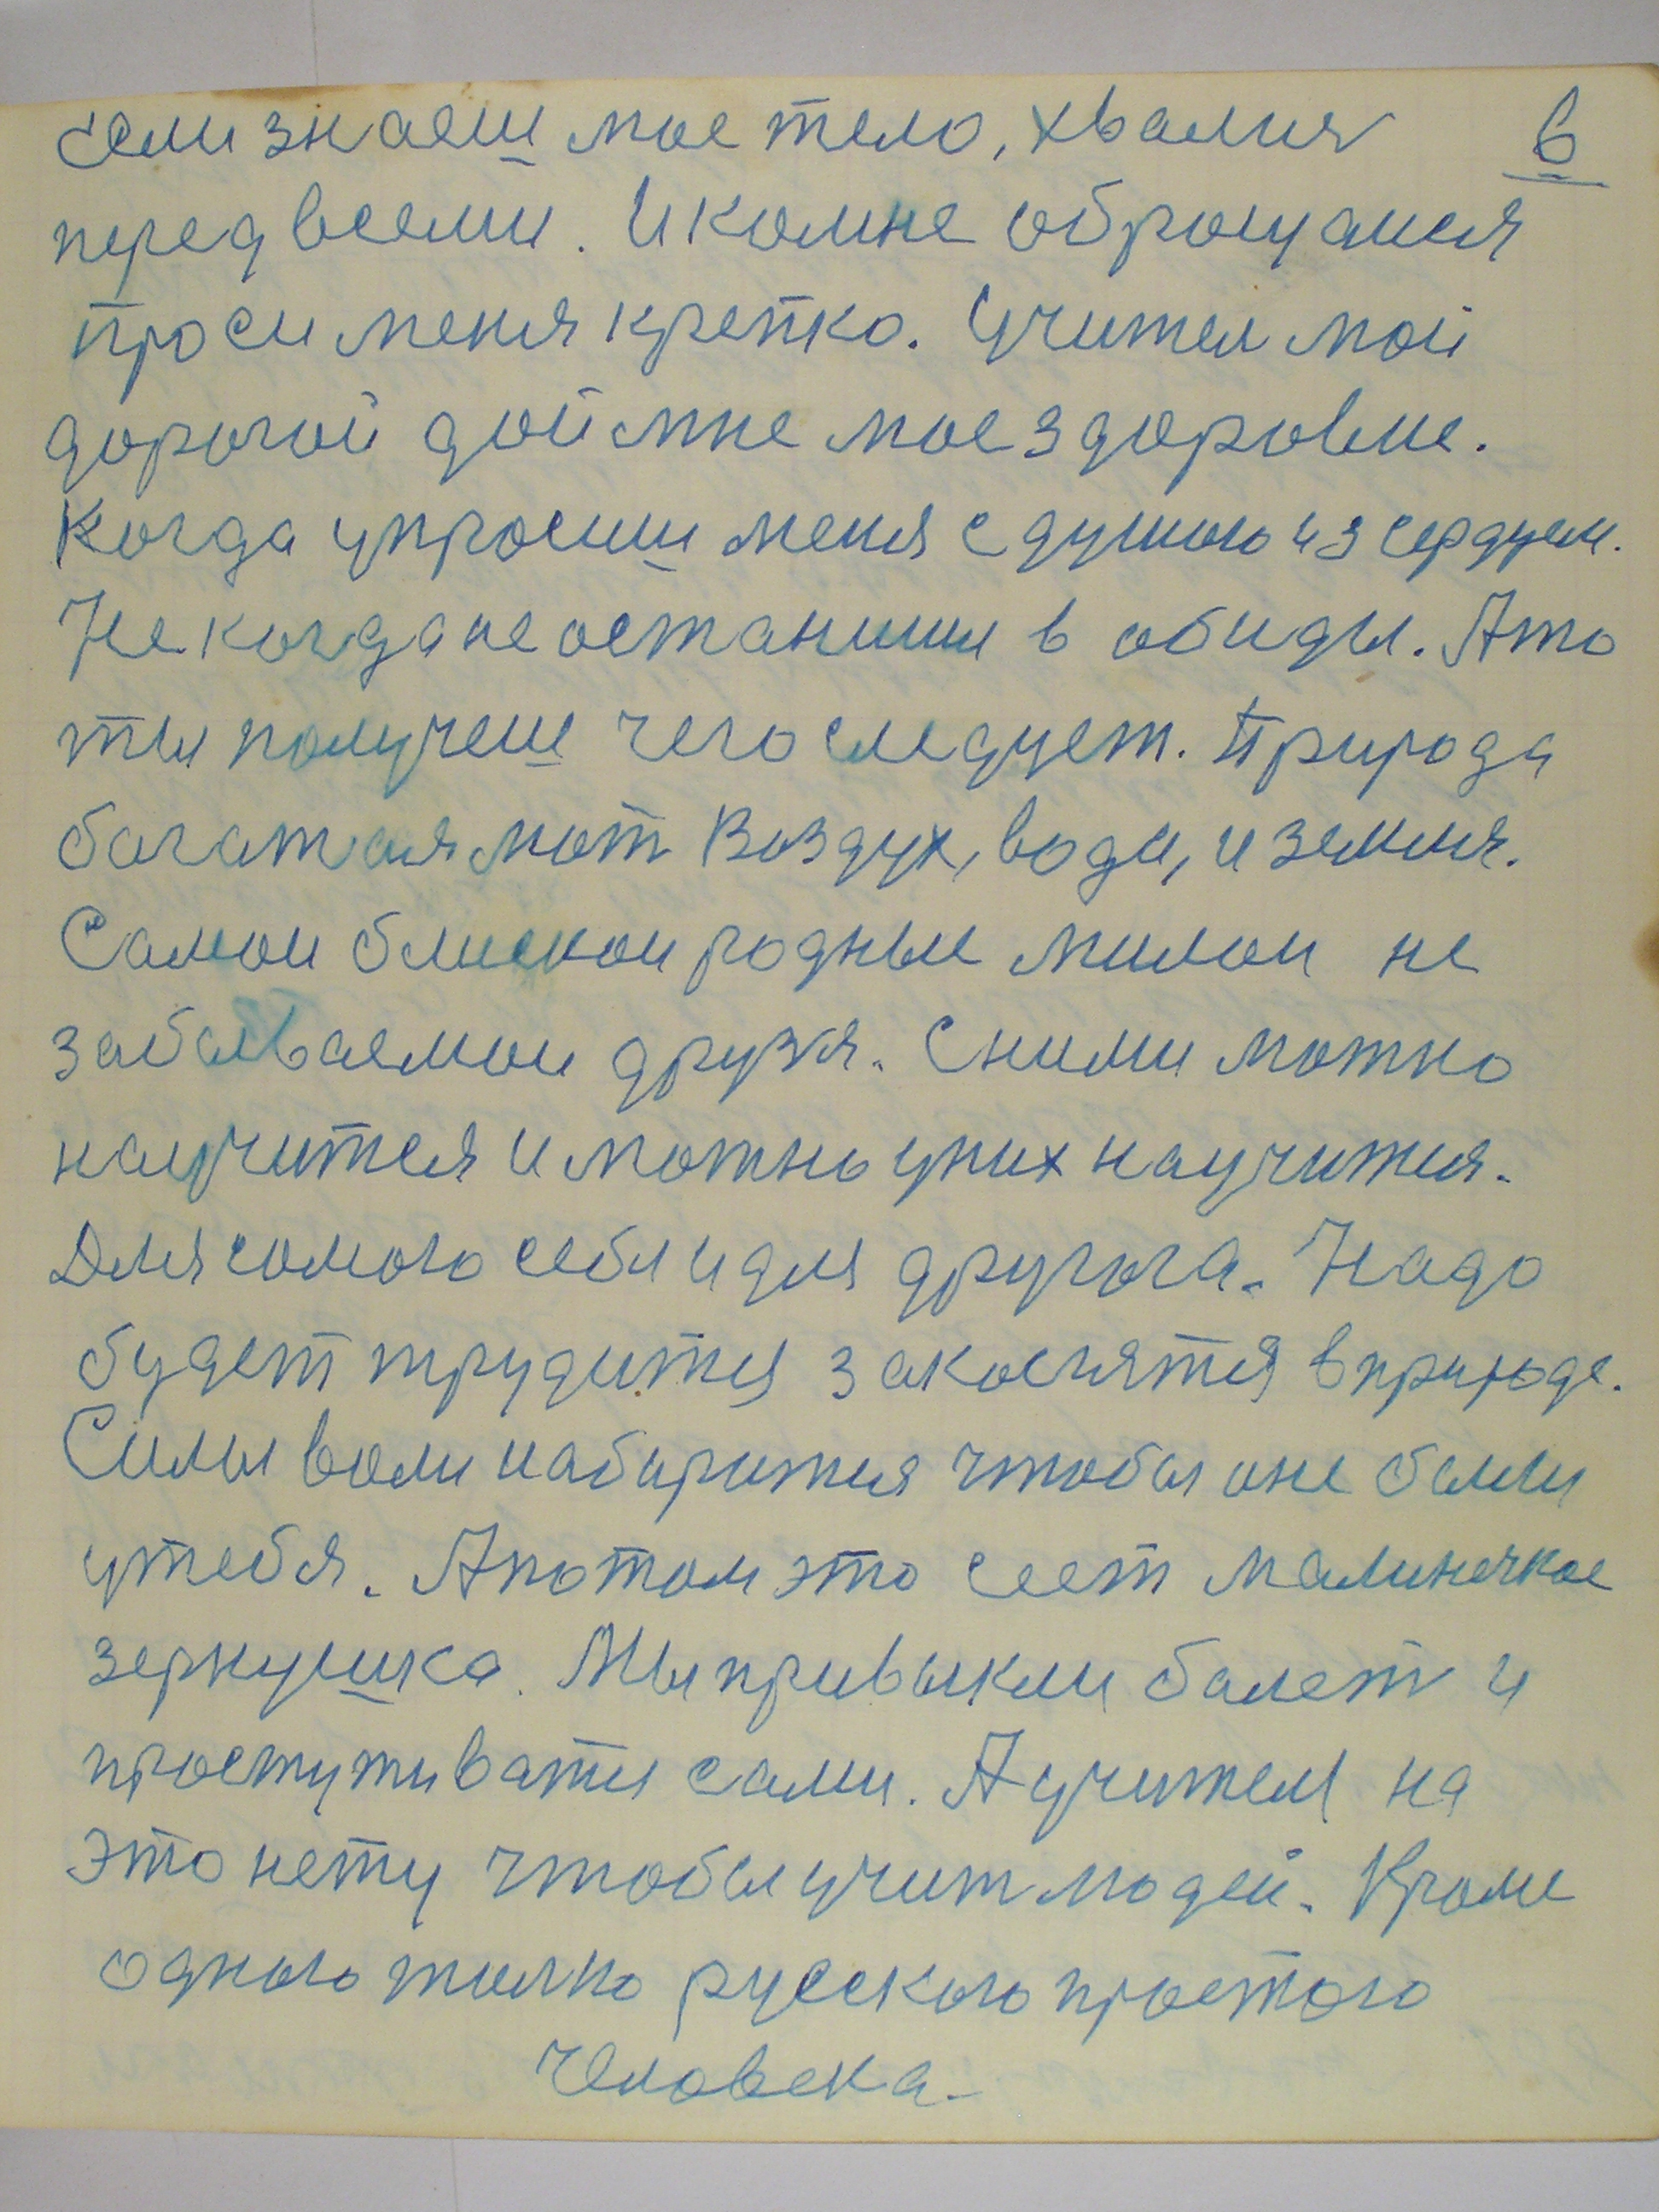 если знаеш мое тело, хвалися 6
перед всеми. И комне обращайся
проси меня крепко. Учител мой
дорогой дой мне мое здоровие.
Когда упросиш меня с душою из сердцем.
Не когда не останишся в обиды. А то
ты получеш чего следует. Природа
богатая мот Воздух, вода, и земля.
Самои блискои родные милои не
забываемои друзя. Сними можно
научится и можно уних научится.
Для самого себя и для другога. Надо
будет трудится закоснятся в природе.
Силы воли набиратся чтобы оне были
утебя. А потом это сеет малинечкое
зернушка. Мы привыкли болет и
простуживатся сами. А учителя на
это нету чтобы учит людей. Кроме
одного толко русского простого
человека.